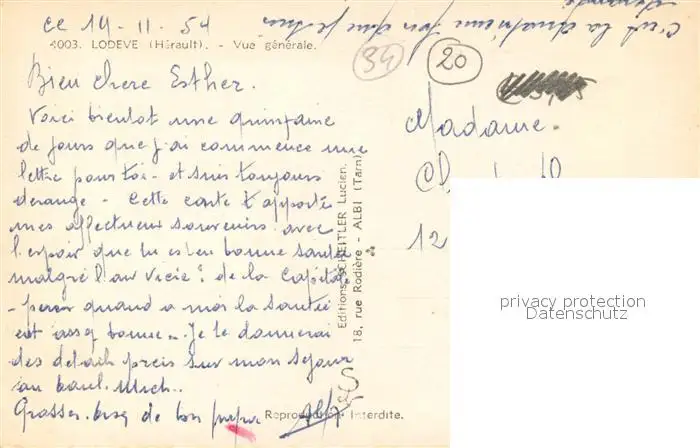 c'est la quatrième fois que je suis
dérangé
ce 14-11-54
4003. LODEVE (Hérault). - Vue générale.
34
20
Bien chere Esther.
Voici bientot une quinzaine
de jours que j'ai commence une
lettre pour toi - et suis toujours
derange - Cette carte t'apporte
mes affectueux souvenirs avec
l'espoir que tu es en bonne santé
malgré l'air vicié de la Capitale
- pour quand a moi la santé
est assez bonne... Je te donnerai
des details precis sur mon sejour
au
Grosses de ton
Madame.
12
Editions SCHEITLER Lucien.
18, rue Rodière - ALBI (Tarn)
Reproduction Interdite.
privacy protection
Datenschutz